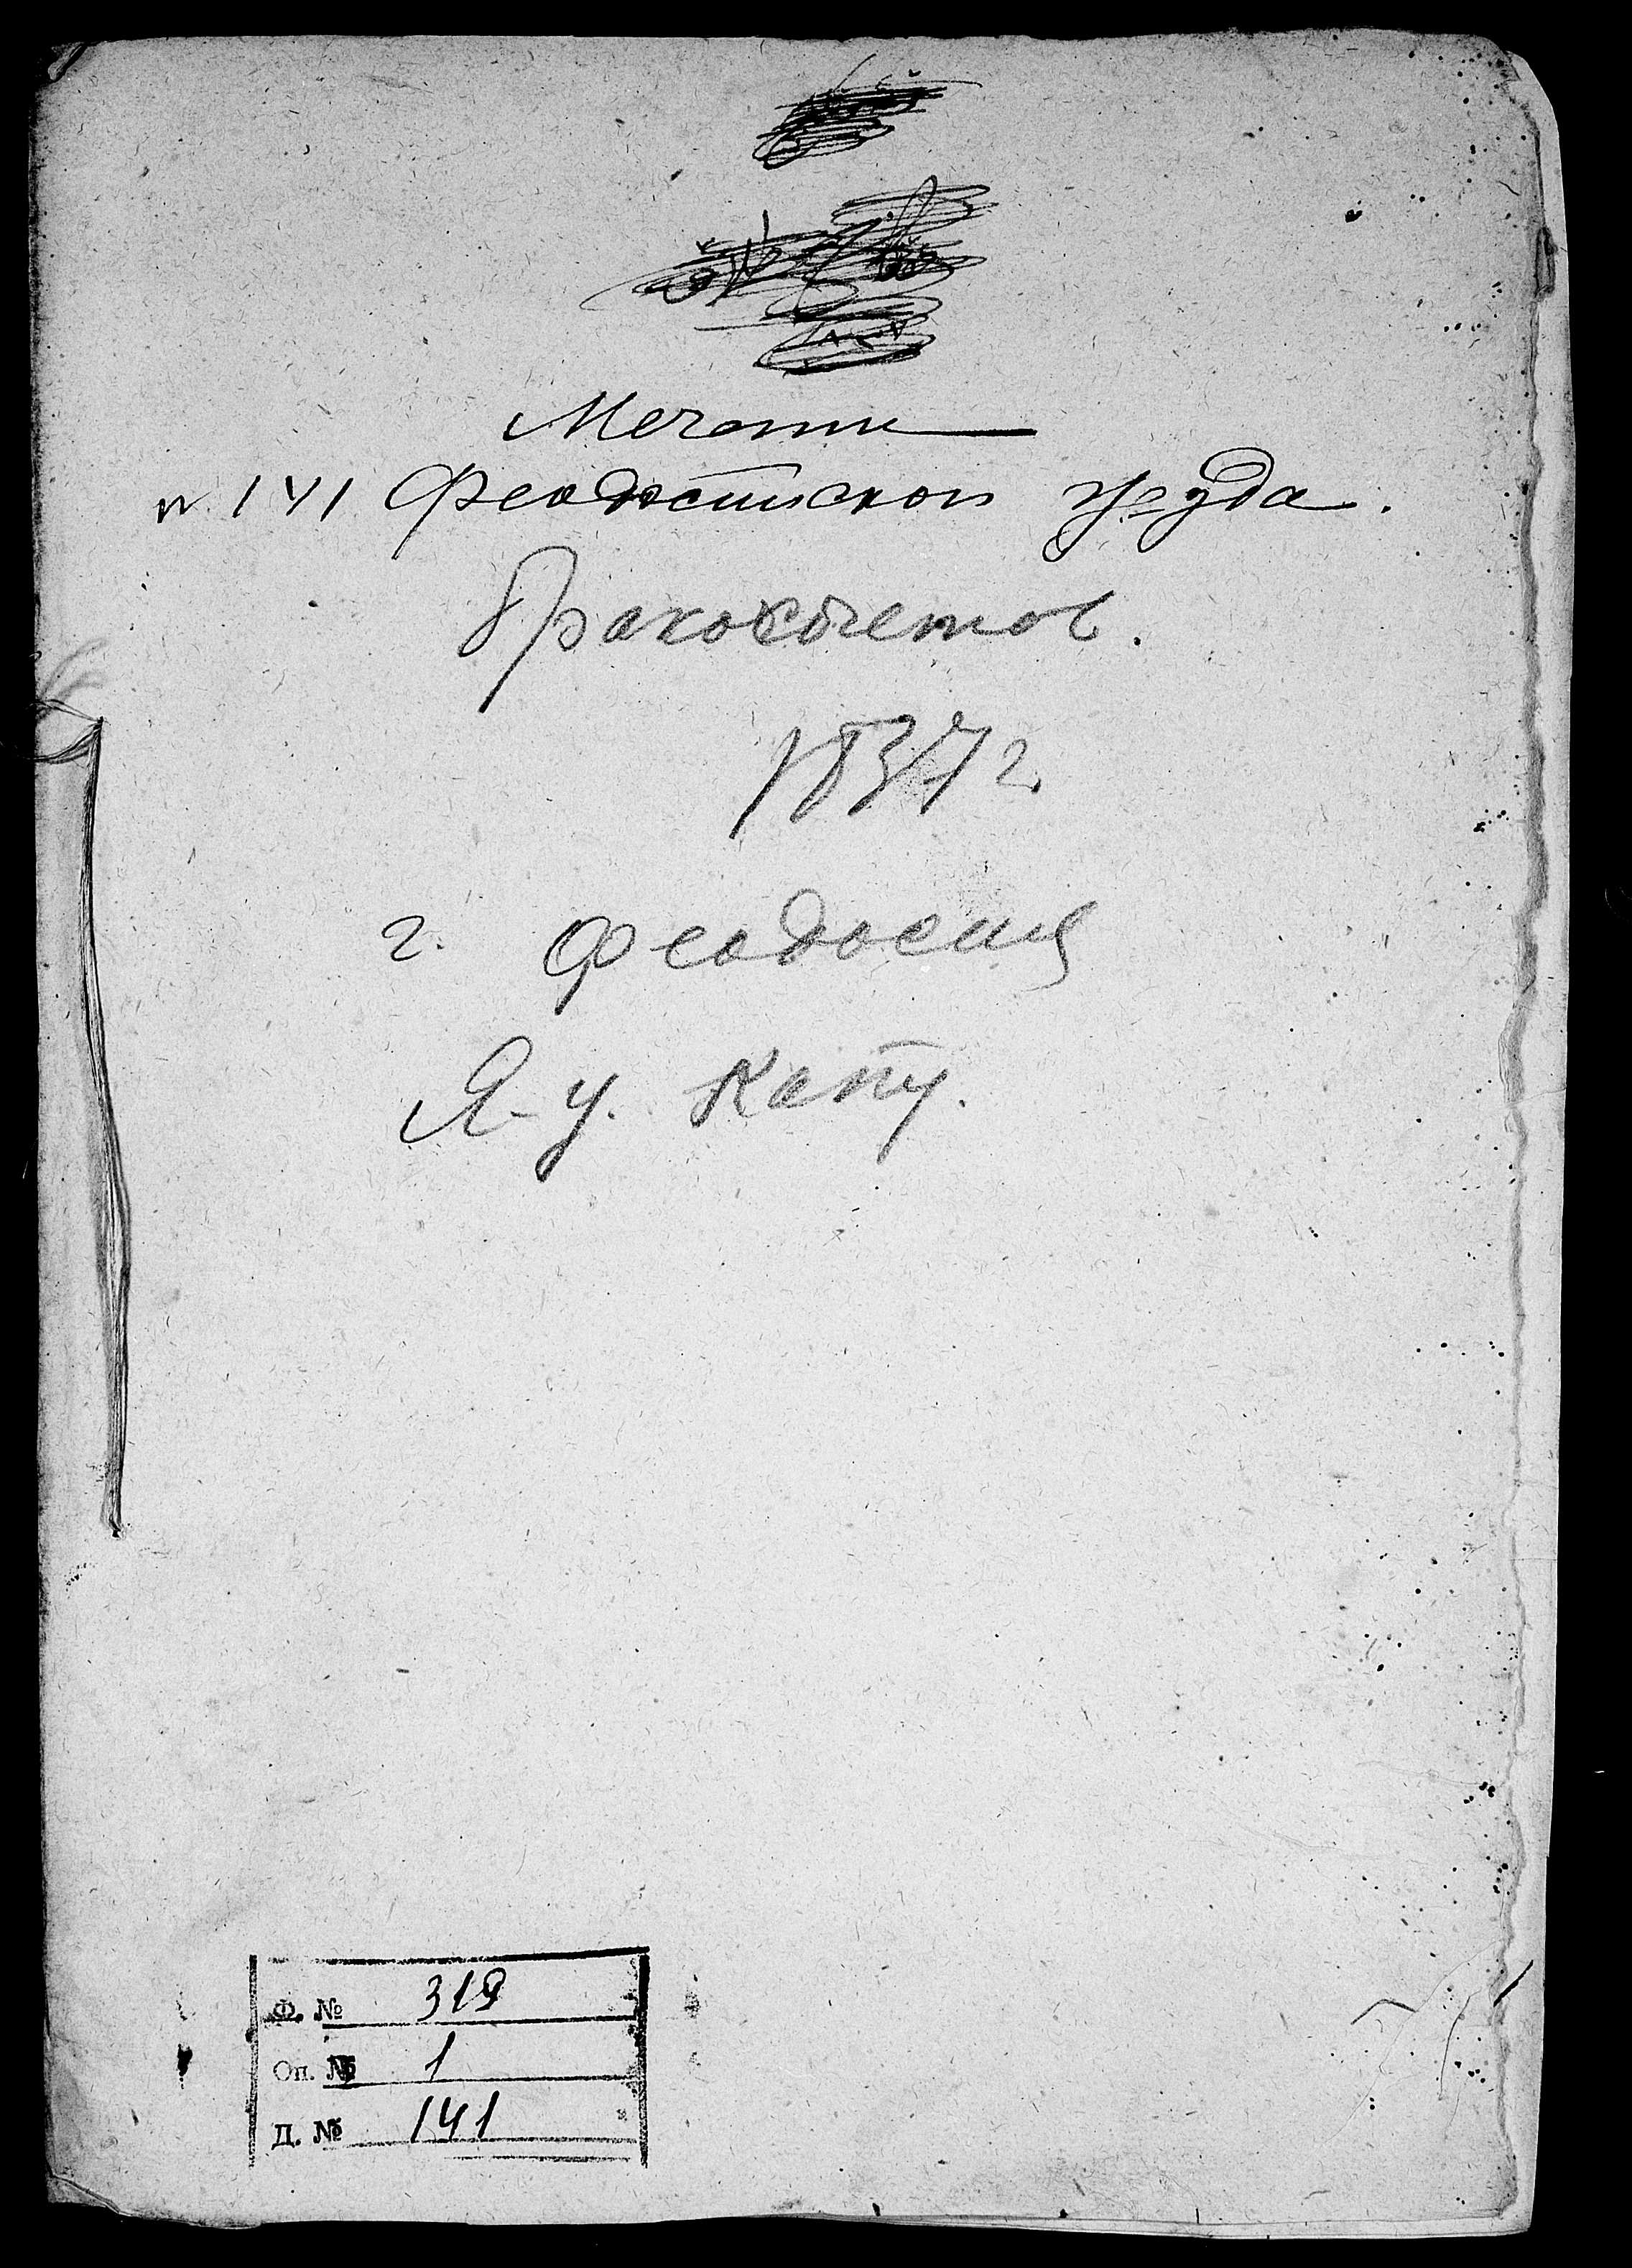 Мечети
№ 141 Феодосииской уезда.
Бракосочетов.
1837 г.
г. Феодосия
Я-у. Капу.
Ф. № 319
Оп. № 1
Д. № 141